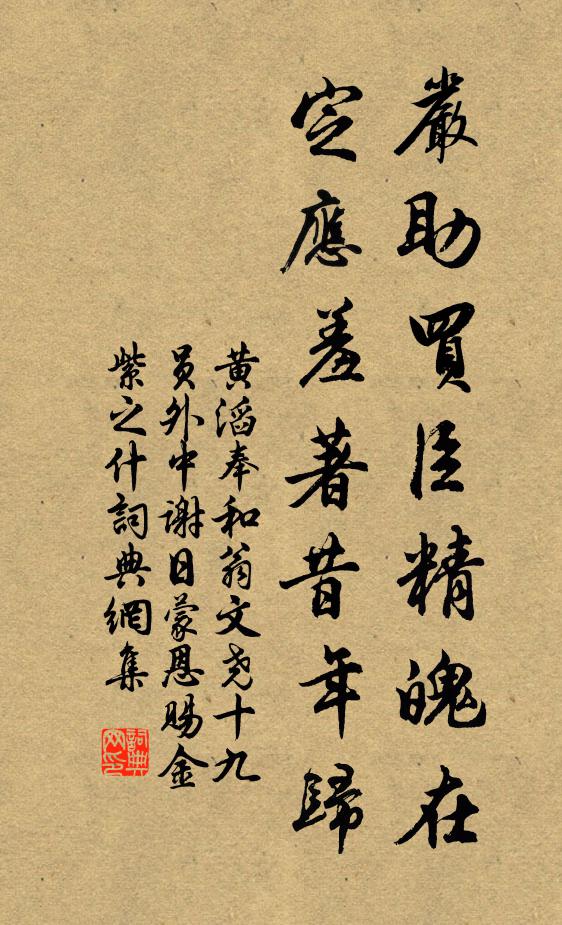 嚴助買臣精魄在
定應羞著昔年歸
黃滔奉和翁文堯十九
員外中謝日蒙恩賜金
紫之什詞典網集
詞典
网印